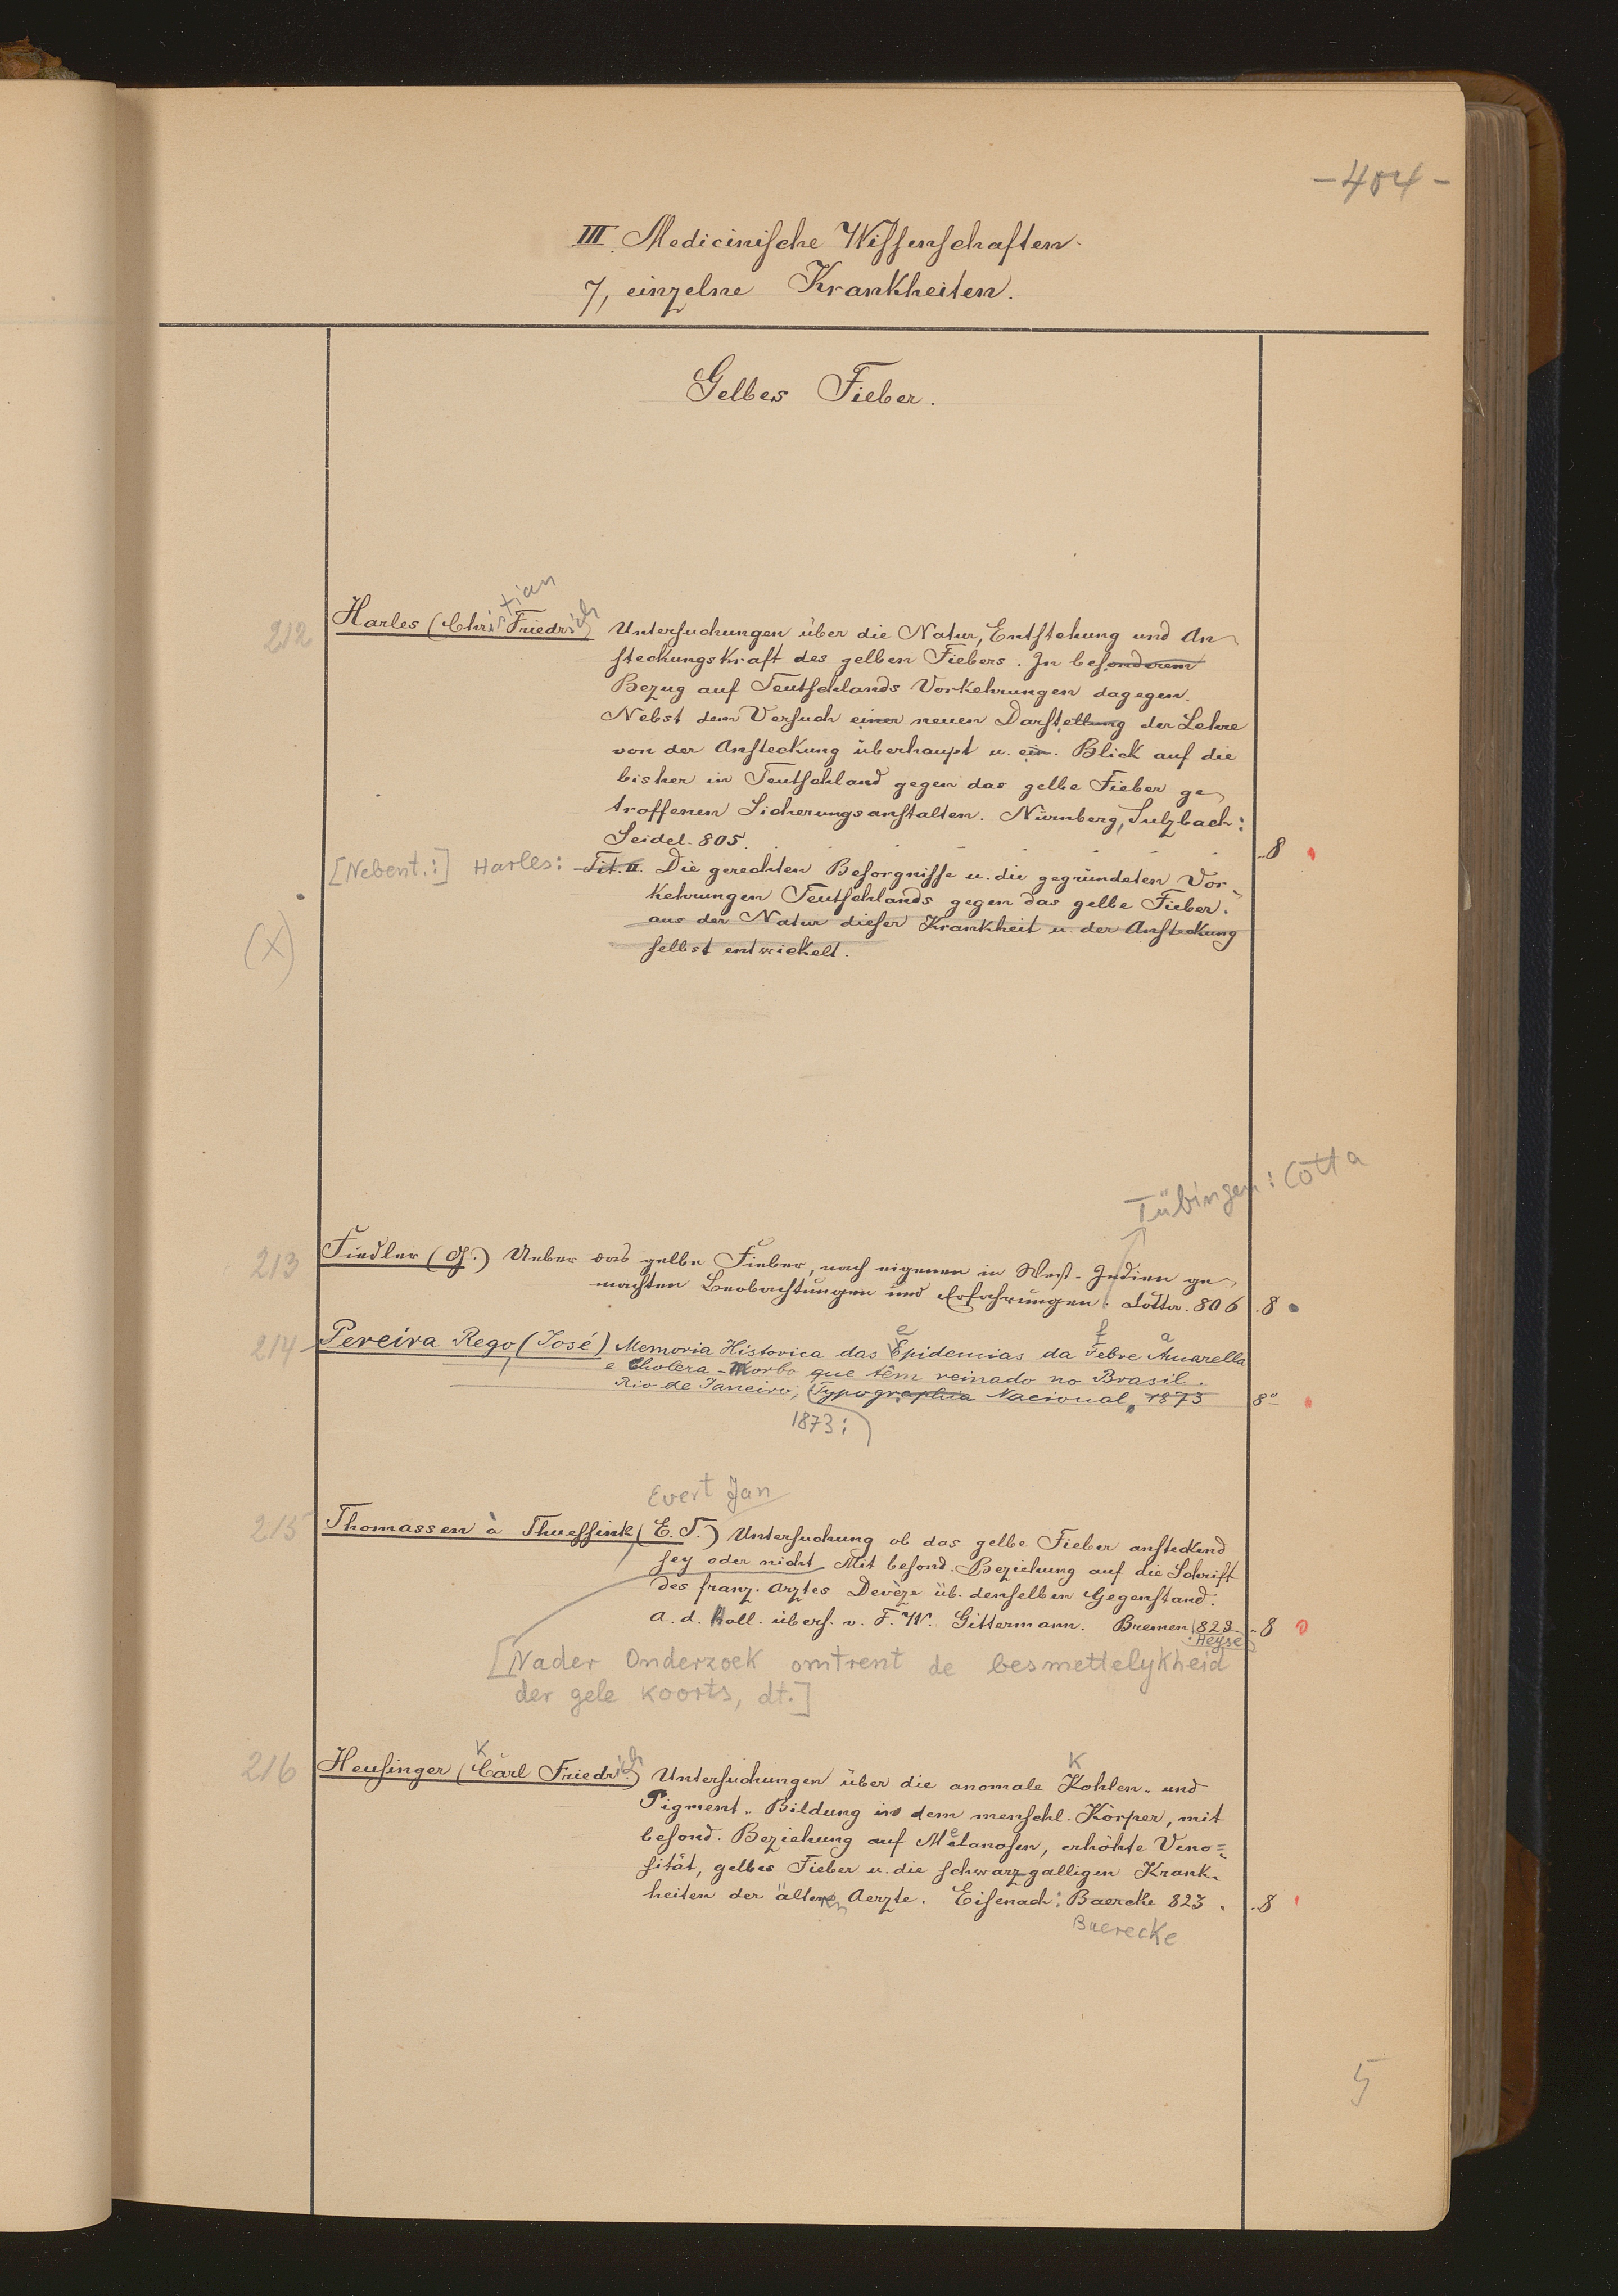 -404-
III. Medicinische Wissenschaften.
7, einzelne Krankheiten.
Gelbes Fieber.
212 Harles (Christian Friedrich) Untersuchungen über die Natur, Entstehung und An-
steckungskraft des gelben Fiebers. In besonderem
Bezug auf Teutschlands Vorkehrungen dagegen.
Nebst dem Versuch einer neuen Darstellung der Lehre
von der Ansteckung überhaupt u. ein. Blick auf die
bisher in Teutschland gegen das gelbe Fieber ge-
troffenen Sicherungsanstalten. Nürnberg, Sulzbach:
Seidel. 805. 8
[Nebent.:] Harles: Tit. II. Die gerechten Besorgnisse u. die gegründeten Vor-
kehrungen Teutschlands gegen das gelbe Fieber.
aus der Natur dieser Krankheit u. der Ansteckung
(X) selbst entwickelt.
Tübingen: Cotta
213 Fiedler (G.) Ueber das gelbe Fieber, nach eigenen in West-Indien ge-
machten Beobachtungen und Erfahrungen. Cotta. 806. 8
e f a
214 Pereira Rego, (José) Memoria Historica das Epidemias da Febre Amarella
e Cholera-Morbo que têm reinado no Brasil.
Rio de Janeiro, Typographia Nacional, 1873 8°
1873:
Evert Jan
215 Thomassen à Thuessink, (E. T.) Untersuchung ob das gelbe Fieber ansteckend
sey oder nicht. Mit besond. Beziehung auf die Schrift
des franz. Arztes Devèze üb. denselben Gegenstand.
A. d. Holl. übers. v. F. W. Gittermann. Bremen 823. 8
: Heyse
[Nader Onderzoek omtrent de besmettelykheid
der gele koorts, dt.]
K K
216 Heusinger (Carl Friedrich) Untersuchungen über die anomale Kohlen- und
Pigment-Bildung in dem menschl. Körper, mit
besond. Beziehung auf Melanosen, erhöhte Veno-
sität, gelbes Fieber u. die schwarzgalligen Krank-
heiten der älteren Aerzte. Eisenach: Baercke 823. 8
Baerecke
5